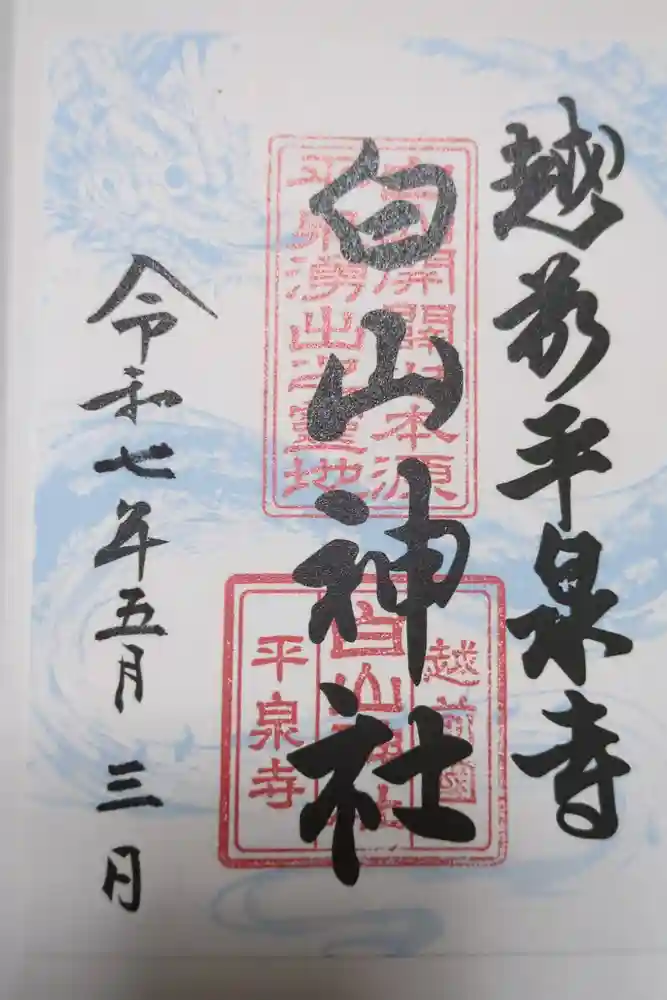 越前平泉寺
白山神社
令和七年五月三日
平泉湧出之靈地
越前國
白山神社
平泉寺